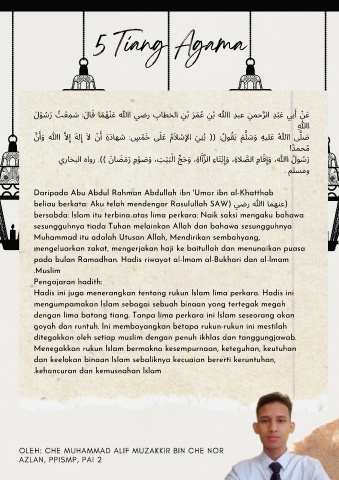 5 Tiang Agama
عَنْ أَبِي عَبْدِ الرَّحمنِ عبدِ االله بْنِ عُمَرَ بْنِ الخطابِ رضي االله عَنْهُمَا قَالَ: سَمِعْتُ رَسُوْلَ
االله
صَلَّى االلهُ عَليهِ وَسَلَّمَ يَقُوْلُ: (( بُنِيَ الإِسْلامُ عَلَى خَمْسٍ: شهادَةِ أَنْ لاَ إِلهَ إِلاَّ االله وَأَنَّ
مُحمدًا
رَسُوْلُ االله، وَإِقَامِ الصَّلاَةِ، وَإِيْتَاءِ الزَّكَاةِ، وَحَجِّ البَيْتِ، وَصَوْمِ رَمَضَانَ )). رواه البخاري
ومسلم .
Daripada Abu Abdul Rahman Abdullah ibn 'Umar ibn al-Khatthab
beliau berkata: Aku telah mendengar Rasulullah SAW (عنهما االله رضي)
bersabda: Islam itu terbina atas lima perkara: Naik saksi mengaku bahawa
sesungguhnya tiada Tuhan melainkan Allah dan bahawa sesungguhnya
Muhammad itu adalah Utusan Allah, Mendirikan sembahyang,
mengeluarkan zakat, mengerjakan haji ke baitullah dan menunaikan puasa
pada bulan Ramadhan. Hadis riwayat al-Imam al-Bukhari dan al-Imam
.Muslim
Pengajaran hadith:
Hadis ini juga menerangkan tentang rukun Islam lima perkara. Hadis ini
mengumpamakan Islam sebagai sebuah binaan yang tertegak megah
dengan lima batang tiang. Tanpa lima perkara ini Islam seseorang akan
goyah dan runtuh. Ini membayangkan betapa rukun-rukun ini mestilah
ditegakkan oleh setiap muslim dengan penuh ikhlas dan tanggungjawab.
Menegakkan rukun Islam bermakna kesempurnaan, keteguhan, keutuhan
dan keelokan binaan Islam sebaliknya kecuaian bererti keruntuhan,
.kehancuran dan kemusnahan Islam
OLEH: CHE MUHAMMAD ALIF MUZAKKIR BIN CHE NOR
AZLAN, PPISMP, PAI 2